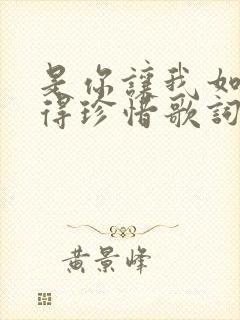 是你讓我如
得珍惜歌詞
黄景峰